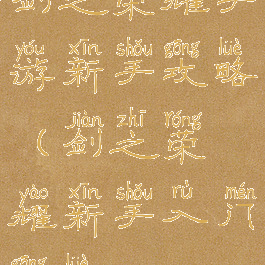 剑之荣耀手
yóu xīn shǒu gōng lüè
游新手攻略
jiàn zhī róng
(剑之荣
yào xīn shǒu rù mén
耀新手入门
gōng lüè